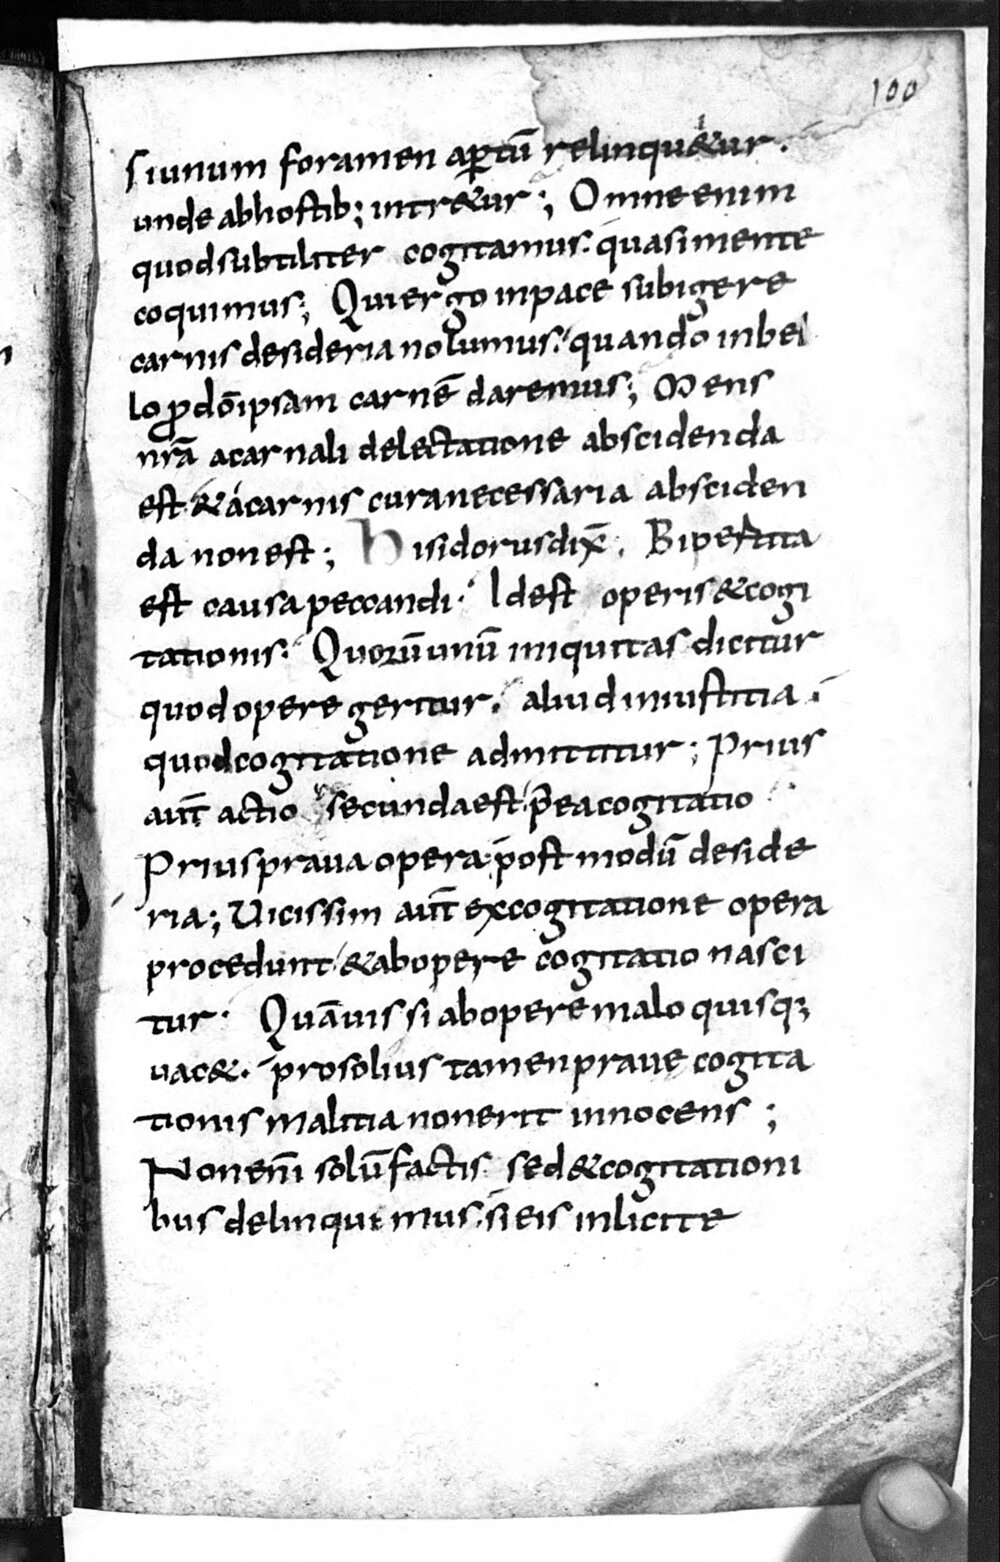 100
siunum foramen aꝑtū relinqu&ur.
unde abhostib; intr&ur; Omne enim
quod subtiliter cogitamus. quasi mente
coquimus; Qui ergo inpace subigere
carnis desideria nolumus. quando inbel
lo ꝓ dō ipsam carnē daremus; Mens
nrā acarnali delectatione abscidenda
est & ácarnis cura necessaria absciden
da non est; Hisidorus dix̄. Bipertita
est causa peccandi. Idest operis & cogi
tationis. Quorū unū iniquitas dicitur
quod opere geritur. aliud iniustitia.
quod cogitatione admittitur; Prius
aut̄ actio secunda est p̄ea cogitatio
Prius praua opera. post modū deside
ria; Uicissim aut̄ excogitatione opera
procedunt & abopere cogitatio nasci
tur. Quāuis si abopere malo quisq;
uac&. prosolius tamen praue cogita
tionis malitia non erit innocens;
Non eni̅ solū factis sed & cogitationi
bus delinquimus. si eis inlicite